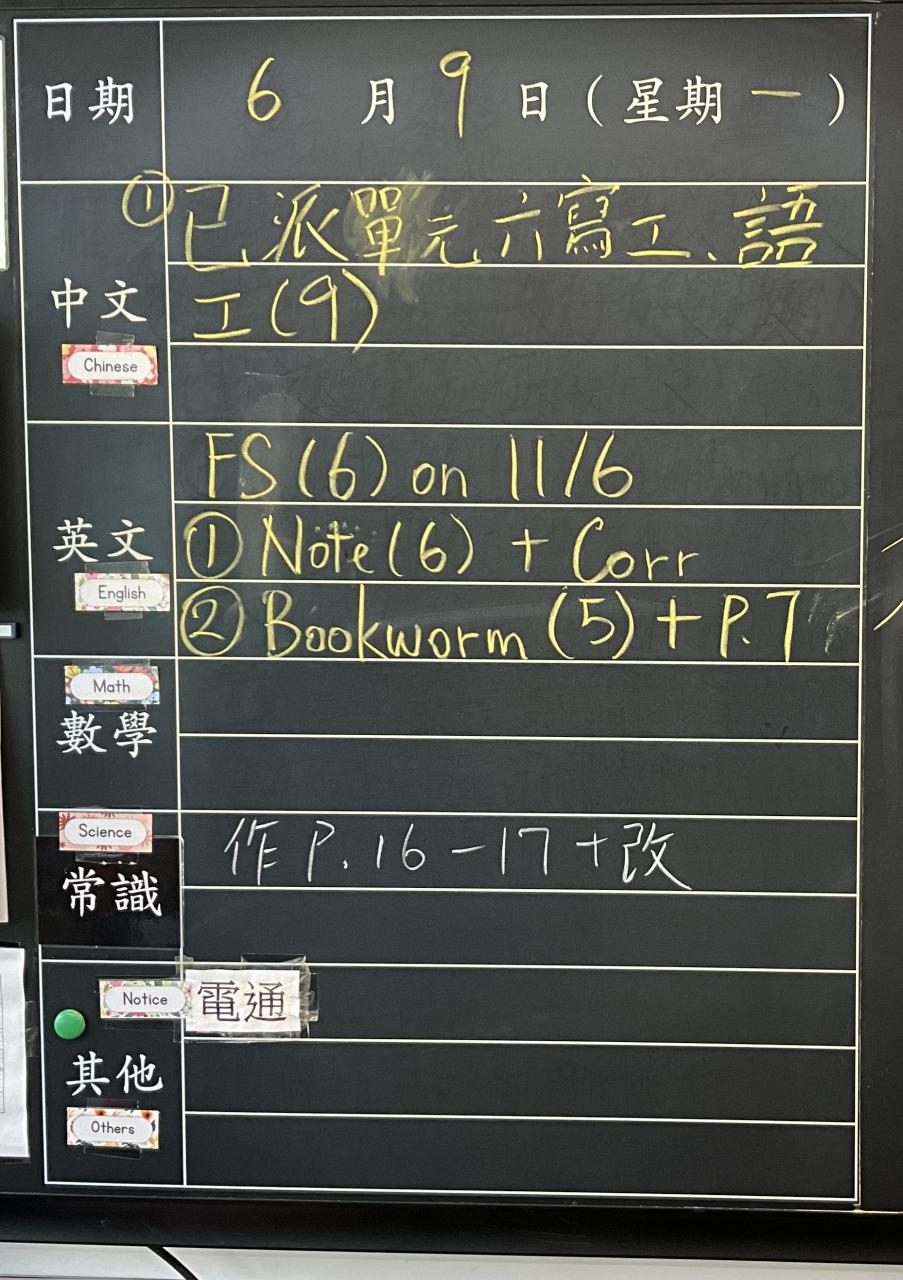 日期 6 月 9 日（星期一）
① 已派單元六寫工、語
工(9)
中文
Chinese
FS(6) on 11/6
英文 ① Note(6) + Corr
English
② Bookworm (5) + P.7
Math
數學
Science
作 P.16-17 + 改
常識
Notice 電通
其他
Others